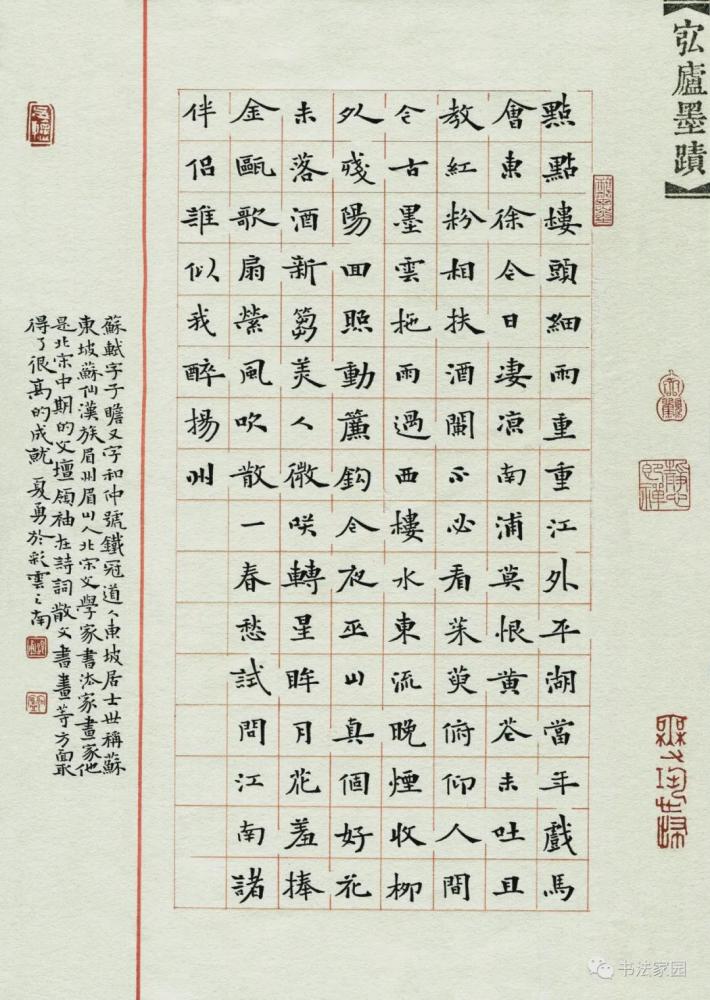 宖廬墨蹟
點點樓頭細雨重重江外平湖當年戲馬
會東徐今日凄凉南浦莫恨黄花未吐且
教紅粉相扶酒闌不必看茱萸俯仰人間
今古墨雲拖雨過西樓水東流晚煙收柳
外殘陽回照動簾鈎今夜巫山真個好花
未落酒新篘美人微咲轉星眸月花羞捧
金甌歌扇縈風吹散一春愁試問江南諸
伴侣誰似我醉揚州
蘇軾字子瞻又字和仲號鐵冠道人東坡居士世稱蘇
東坡蘇仙漢族眉州眉山人北宋文學家書法家畫家他
是北宋中期的文壇領袖在詩詞散文書畫等方面取
得了很高的成就 夏勇於彩雲之南
书法家园